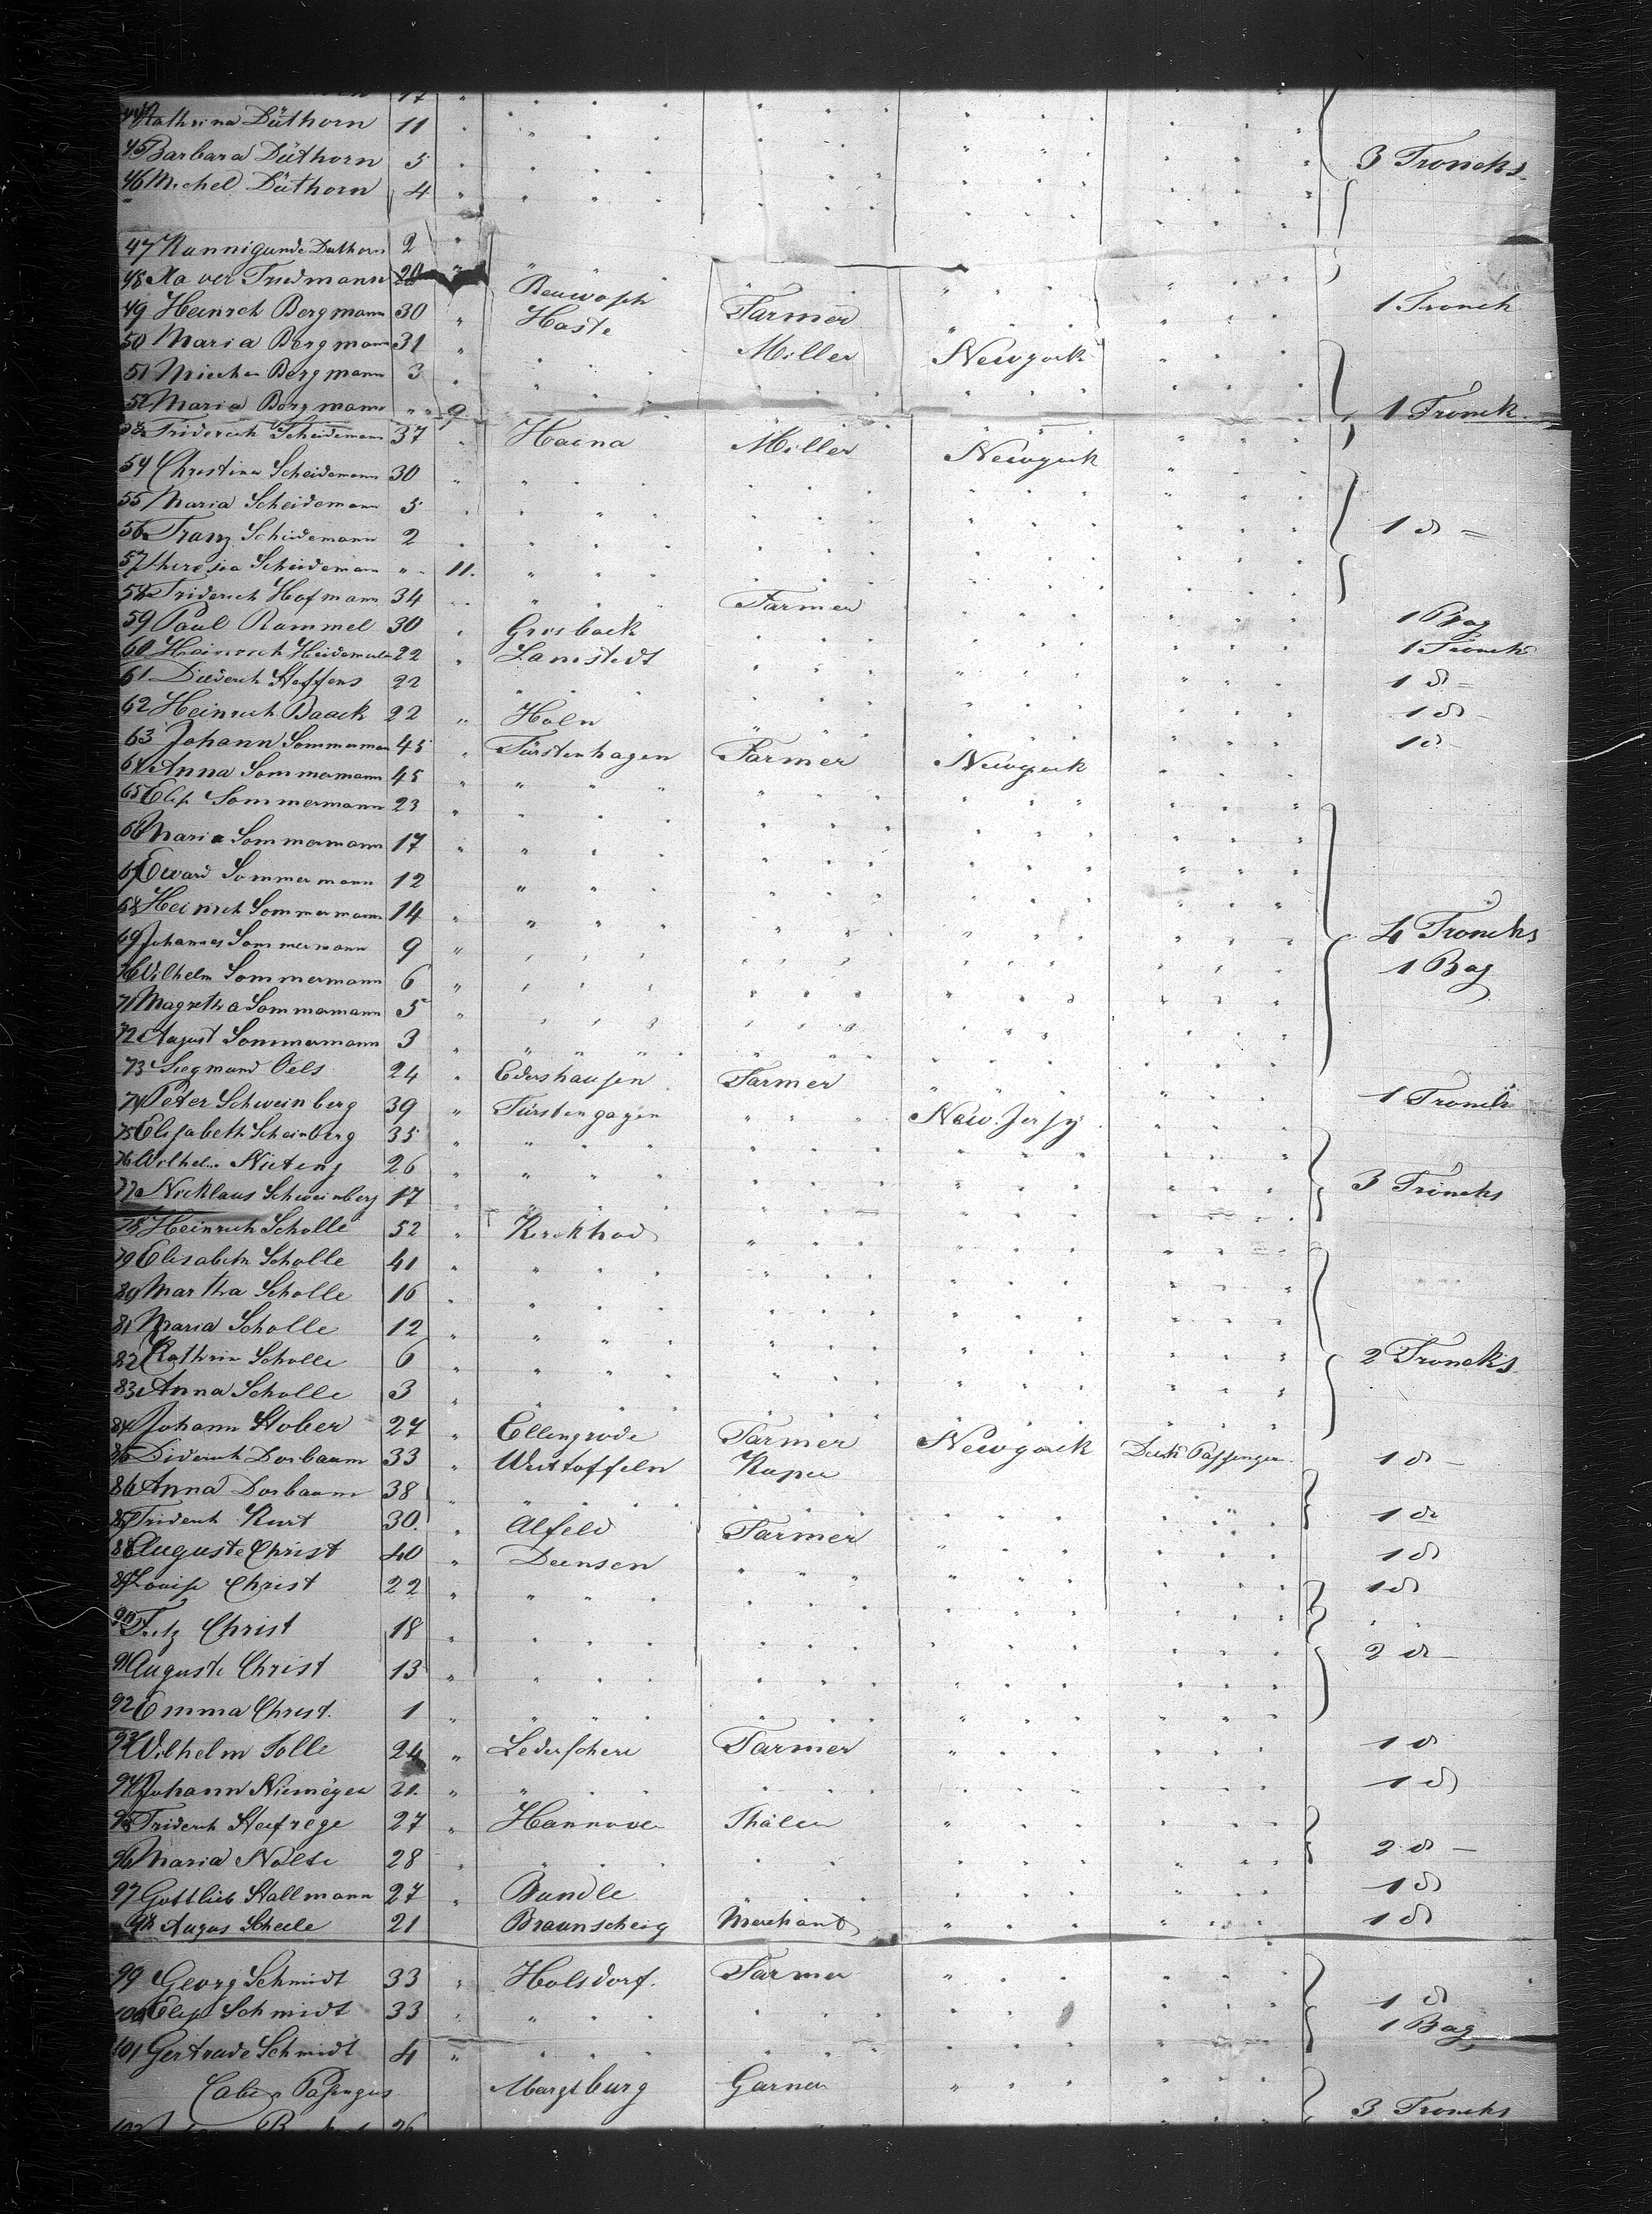 17 "
44 Kathrina Düthorn 11 "
45 Barbara Düthorn 5 " 3 Troncks
46 Michel Düthorn 4 "
47 Kunnigunde Duthorn 2 "
48 Xa ver Fridmann 20 "
49 Heinrch Bergmann 30 " Haste Farmer 1 Tronck
50 Maria Bergmann 31 " Miller Newyork
51 Bergmann 3 "
52 Maria Bergmann " " 9 1 Tronck
53 Friderich Scheidemann 37 " Haina Miller Newyork
54 Christina Scheidemann 30 "
55 Maria Scheidemann 5 "
56 Franz Scheidemann 2 " 1 do =
57 Theresia Scheidemann " 11.
58 Friderich Hofmann 34 " Farmer
59 Paul Rammel 30 " Grosback 1 Bag
60 Heinrich 22 " Lamstedt 1 Tronck
61 Diederich Steffens 22 " 1 do =
62 Heinrich Baack 22 " Holn 1 do -
63 Johann Sommermann 45 " Fürstenhagen Farmer Newyork 1 do
64 Anna Sommermann 45 "
65 Elis Sommermann 23 "
66 Maria Sommermann 17 "
67 Eward Sommermann 12
68 Heinrich Sommermann 14 "
69 Johannes Sommermann 9 " 4 Troncks
70 Wilhelm Sommermann 6 " 1 Bag
71 Magretha Sommermann 5 "
72 August Sommermann 3 "
73 Siegmund Oels 24 " Edershausen Farmer
74 Peter Schweinberg 39 " Fürstengagen New. Jersy 1 Tronck
75 Elisabeth Scheinberg 35 "
76 Wilhelm Nieteng 26 "
77 Nicklaus Schweinberg 17 " 3 Troncks
78 Heinrich Scholle 52 " Kerckhod
79 Elisabeth Scholle 41 "
80 Martha Scholle 16 "
81 Maria Scholle 12 "
82 Kathrin Scholle 6 " 2 Troncks
83 Anna Scholle 3 "
84 Johann Stober 27 " Ellengrode Farmer Newyork
85 Diderich Dorbaum 33 " Westoffeln Deck Passenger 1 do -
86 Anna Dorbaum 38 "
87 Friderich Kurt 30. " Alfeld Farmer 1 do
88 Auguste Christ 40 " Deensen 1 do
89 Louise Christ 22 " 1 do
90 Fritz Christ 18 "
91 Auguste Christ 13 " 2 do -
92 Emma Christ. 1 "
93 Wilhelm Tolle 24 " Farmer 1 do
94 Johann Niemeyer 21. " 1 do
95 Friderich 27 " Hannover
96 Maria Nolte 28 " 2 do -
97 Gottlieb Stallmann 27 " Bundle 1 do
98 Augus Scheele 21 Braunscheig Merchant 1 do
99 Georg Schmidt 33 " Holsdorf. Farmer
100 Elis Schmidt 33 " 1 do
101 Gertrude Schmidt 4 " 1 Bag
Cabin Pasengers Margsburg Garner
26 3 Troncks